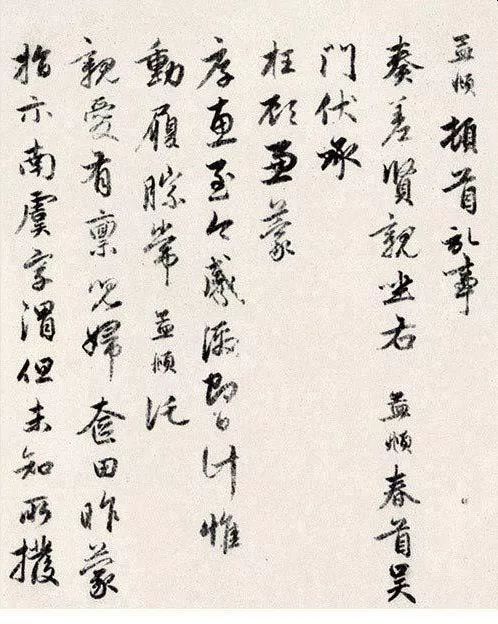 孟頫頓首 事
奏差賢親坐右 孟頫春首吳
門伏承
枉顧兼蒙
厚惠至今感激即日計惟
動履勝常孟頫託
親愛有稟兒婦奩田昨蒙
指示南虞字渭但未知所撥